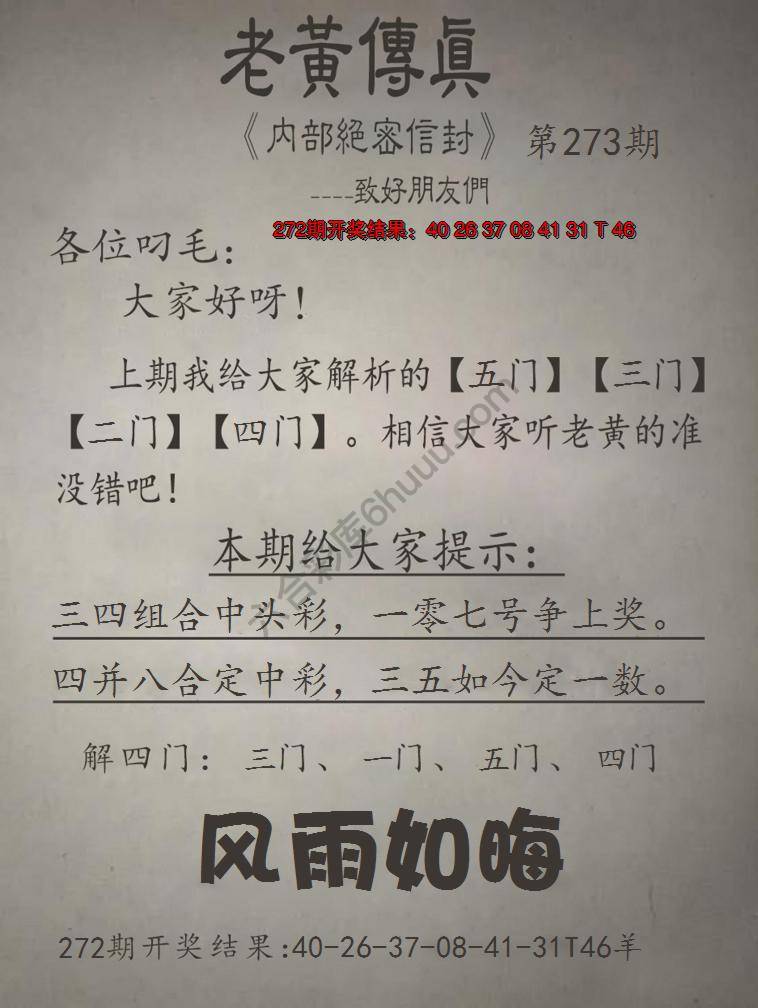 老黃傳眞
《内部絕密信封》 第273期
----致好朋友們
272期开奖结果：40 26 37 08 41 31 T 46
各位叼毛：
大家好呀！
上期我给大家解析的【五门】【三门】
【二门】【四门】。相信大家听老黄的准
没错吧！
本期给大家提示：
三四组合中头彩，一零七号争上奖。
四并八合定中彩，三五如今定一数。
解四门：三门、一门、五门、四门
风雨如晦
272期开奖结果:40-26-37-08-41-31T46羊
六合彩库6huuu.com